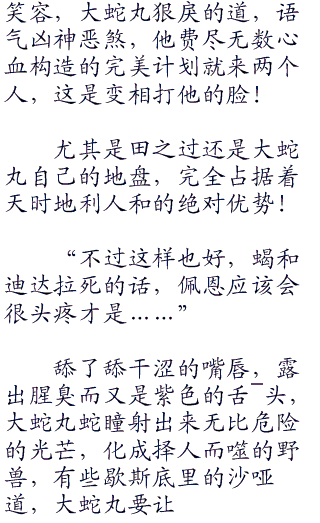 笑容，大蛇丸狠戾的道，语
气凶神恶煞，他费尽无数心
血构造的完美计划就来两个
人，这是变相打他的脸！
尤其是田之过还是大蛇
丸自己的地盘，完全占据着
天时地利人和的绝对优势！
“不过这样也好，蝎和
迪达拉死的话，佩恩应该会
很头疼才是……”
舔了舔干涩的嘴唇，露
出腥臭而又是紫色的舌¯头，
大蛇丸蛇瞳射出来无比危险
的光芒，化成择人而噬的野
兽，有些歇斯底里的沙哑
道，大蛇丸要让